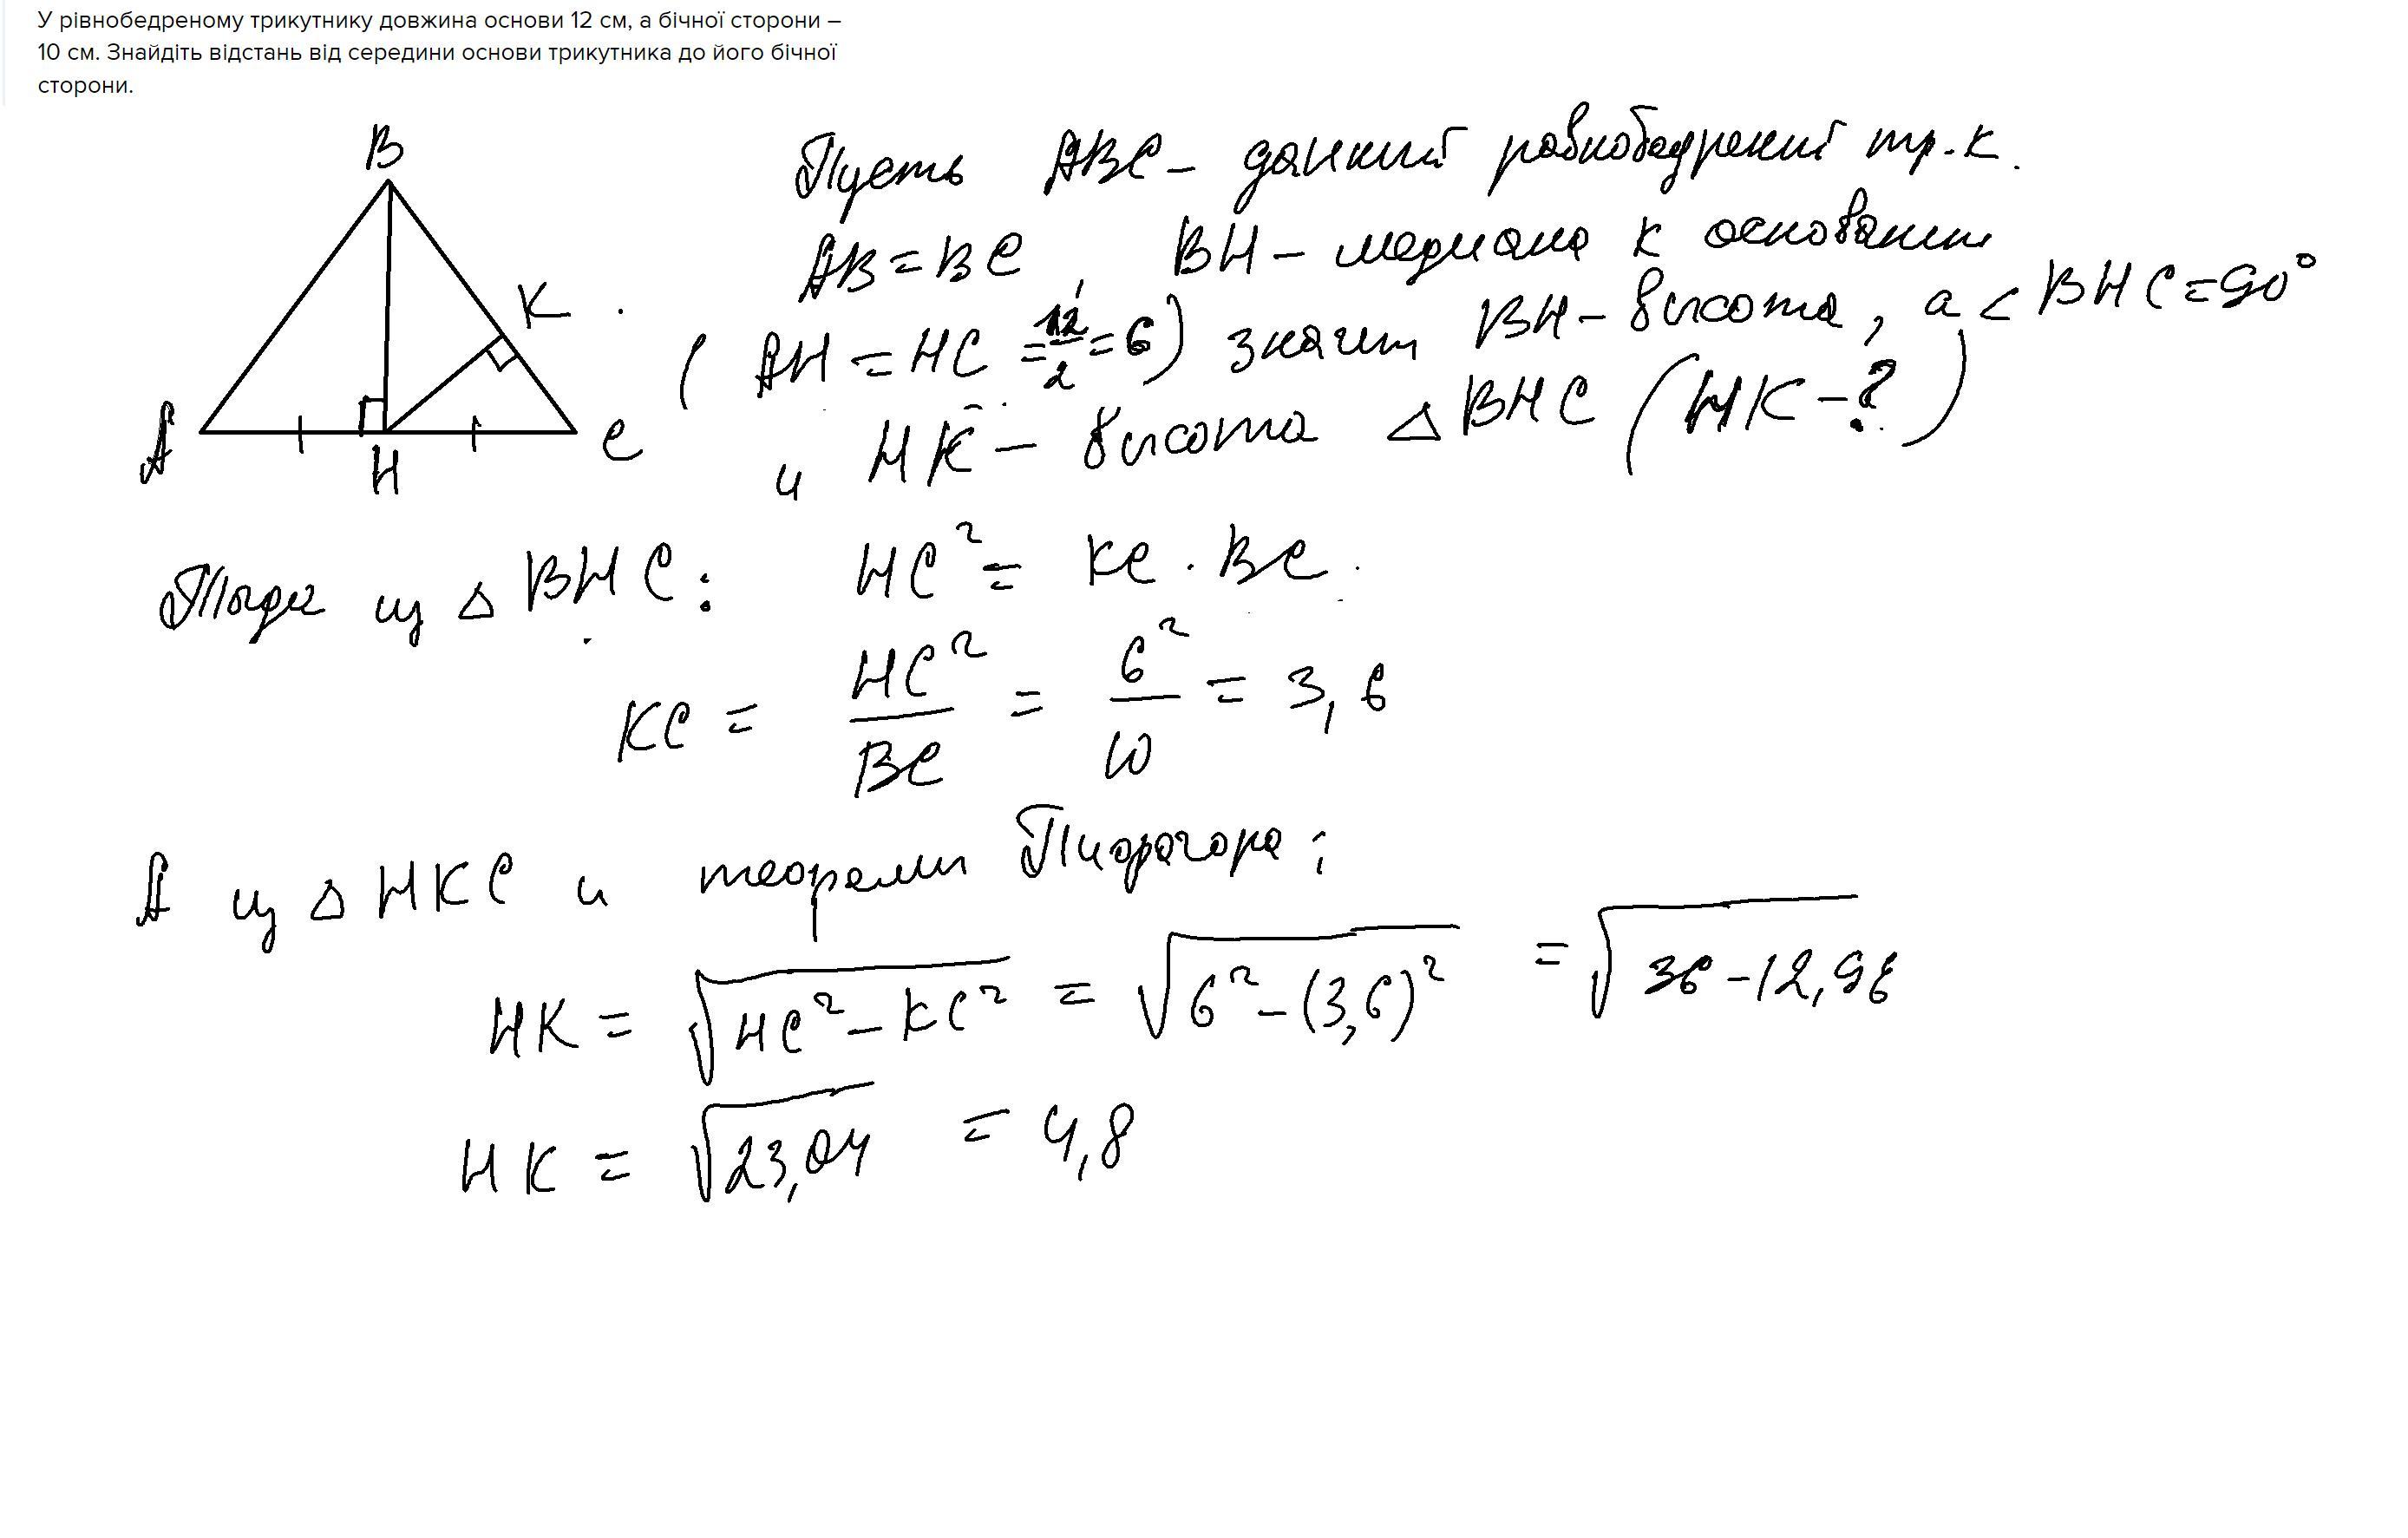 У рівнобедреному трикутнику довжина основи 12 см, а бічної сторони –
10 см. Знайдіть відстань від середини основи трикутника до його бічної
сторони.
B
K
A
H
C
Пусть ABC – данний равнобедрений тр.к.
AB = BC, BH – медиана к основанию
(AH = HC = 12/2 = 6) значит BH – висота, а < BHC = 90°
и HK – висота △ BHC (HK – ?)
Тогда из △ BHC: HC² = KC · BC
KC = HC²/BC = 6²/10 = 3,6
А из △ HKC и теореми Пифагора:
HK = √(HC² – KC²) = √(6² – (3,6)²) = √(36 – 12,96)
HK = √23,04 = 4,8